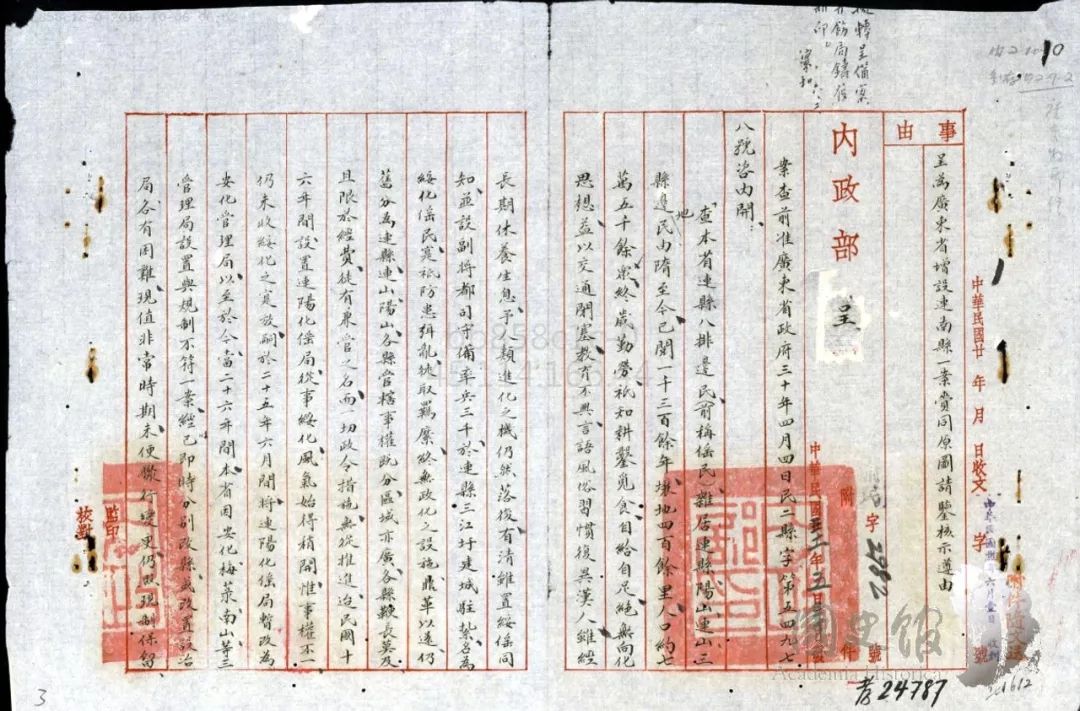 事由
呈為廣東省增設連南縣一案賫同原圖請鑒核示遵由
中華民國廿年月日收文字號
內政部呈
附件
字2982號
中華民國三十年五月
案查前准廣東省政府三十年四月四日民二縣字第五四九七
八號咨內開：
查本省連縣八排邊民（前稱傜民）雜居連縣陽山連山三
縣邊地民由隋至今已閱一千三百餘年壤地四百餘里人口約七
萬五千餘衆終歲勤勞祇知耕鑿覓食自給自足絕無向化
思想益以交通閉塞教育不興言語風俗習慣復異漢人雖經
長期休養生息予人類進化之機仍然落後有清雖置綏傜同
知並設副將都司守備率兵三千於連縣三江圩建城駐紮名為
綏化傜民寔祇防患緝亂狹取羈縻終無政化之設施鼎革以還仍
舊分為連縣連山陽山各縣管轄事權既分區域亦廣各縣鞭長莫及
且限於經費徒有兼管之名而一切政令措施無從推進迨民國十
六年間設置連陽化傜局從事綏化風氣始得稍開惟事權不一
仍未收綏化之具放嗣於二十五年六月間將連陽化傜局暫改為
安化管理局以至於今當二十六年間本省因安化梅菉南山等三
管理局設置與規制不符一案經已即時分別改縣或改置設治
局各有困難現值非常時期未便擬行變更仍照現制保留
監印
核對
國史館
Academia Historica
24787
3